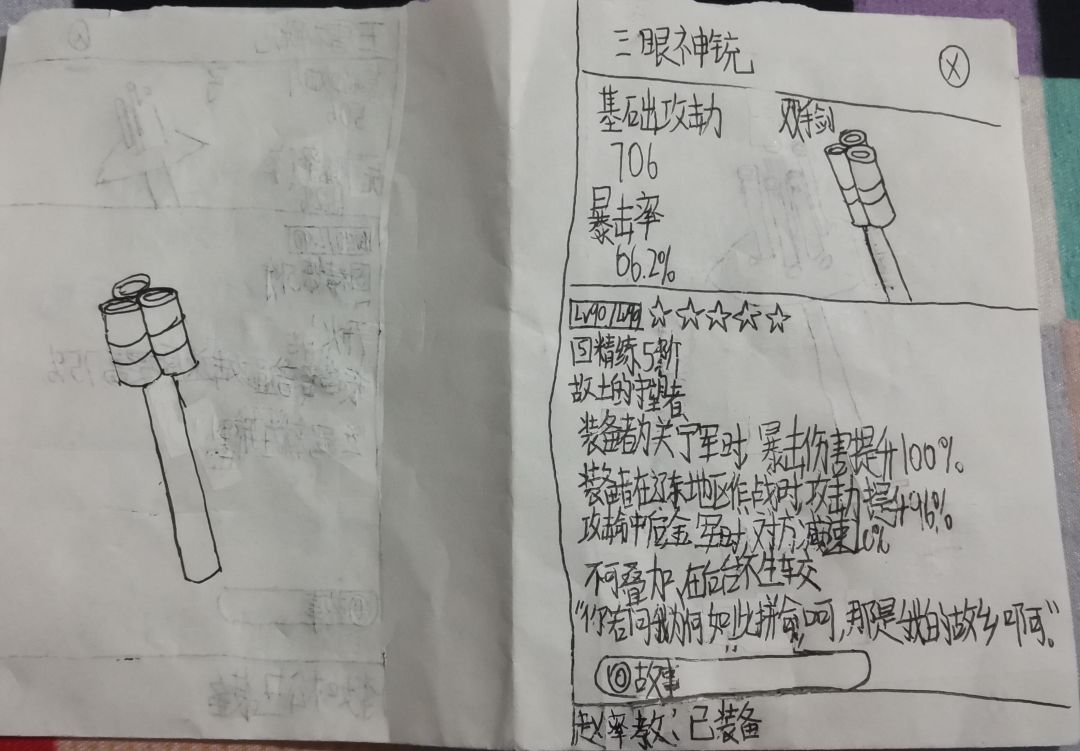 三眼神铳
X
基础攻击力
双手剑
706
暴击率
66.2%
LV90/LV90 ☆☆☆☆☆
回精练5阶
故土的守望者
装备者为关宁军时,暴击伤害提升100%
装备者在辽东地区作战时,攻击力提升96%
攻击命中后金军时,对方减速10%
不可叠加,在后台不生效
"你若问我为何如此拼命呵,那是我的故乡啊。"
故事
赵率教:已装备